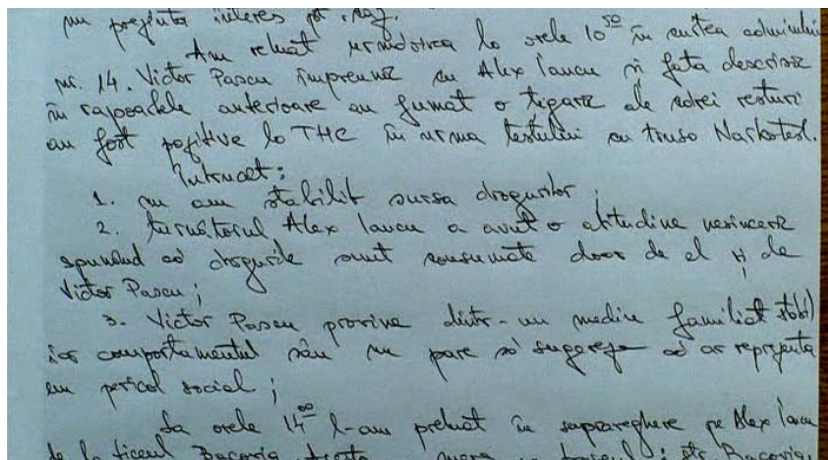 nu prezintă interes pt. caz.
Am reluat urmărirea la orele 10⁵⁰ în curtea căminului
nr. 14. Victor Pascu împreună cu Alex Iancu și fata descrisă
în rapoartele anterioare au fumat o țigară ale cărei resturi
au fost pozitive la THC în urma testului cu trusa Narkotest.
Întrucât:
1. nu am stabilit sursa drogurilor;
2. turnătorul Alex Iancu a avut o atitudine nesinceră
spunând că drogurile sunt consumate doar de el și de
Victor Pascu;
3. Victor Pascu provine dintr-un mediu familial stabil
iar comportamentul său nu pare să sugereze că ar reprezenta
un pericol social;
La orele 14⁰⁰ l-am preluat în supraveghere pe Alex Iancu
de la liceul Bacovia. Acesta merge pe traseul: str. Bacovia,